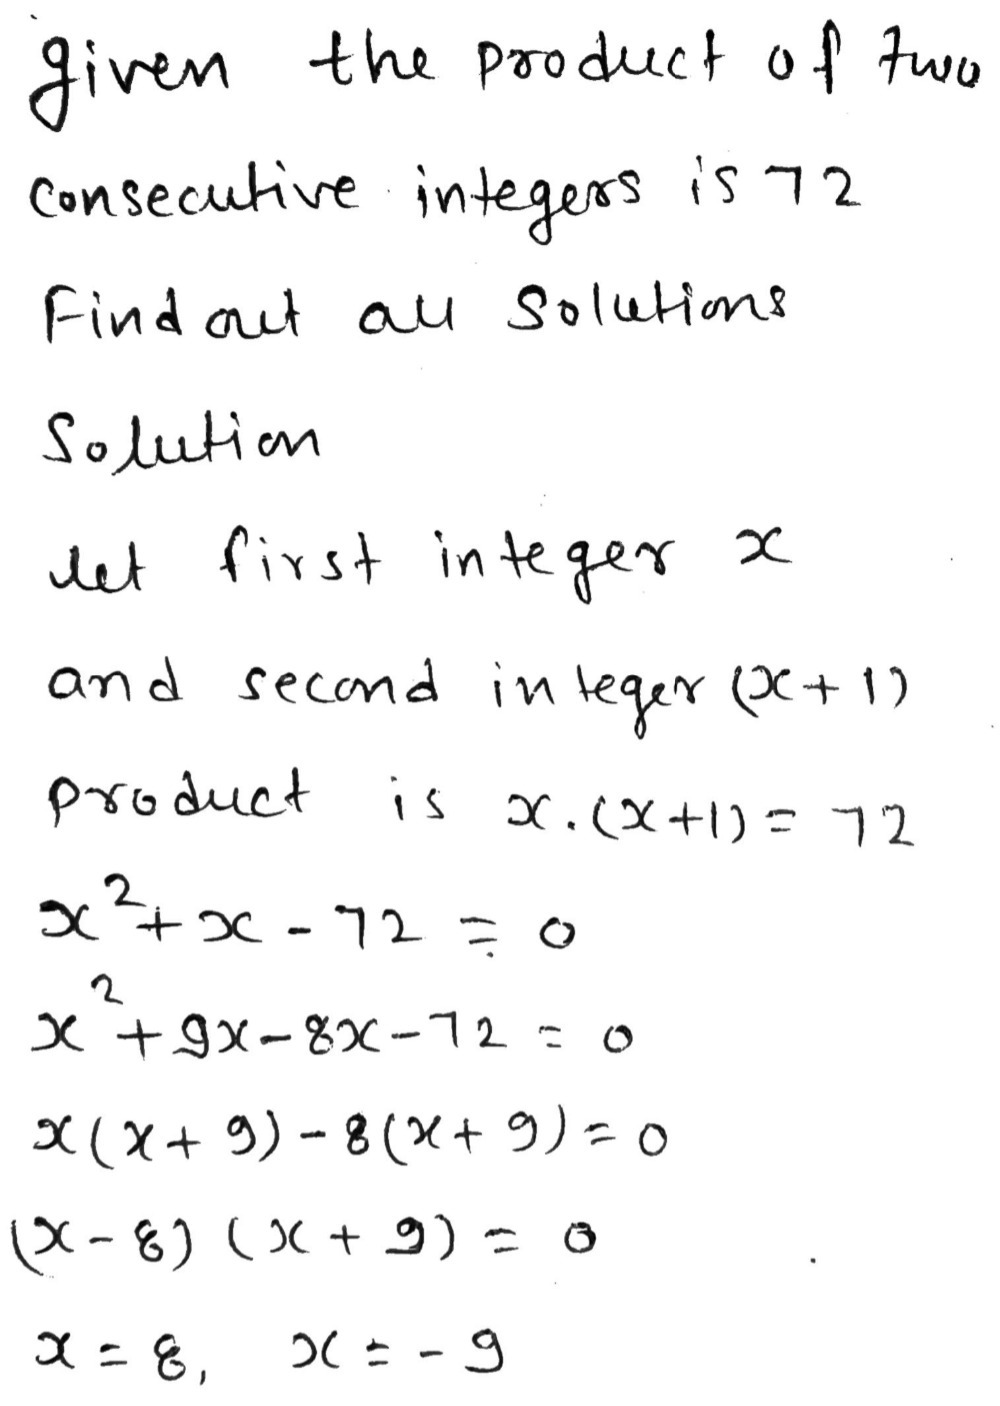 given the product of two
consecutive integers is 72
Find out all solutions
Solution
let first integer x
and second integer (x+1)
product is x.(x+1) = 72
x²+x-72 = 0
x²+9x-8x-72 = 0
x(x+9)-8(x+9)=0
(x-8)(x+9) = 0
x=8, x=-9